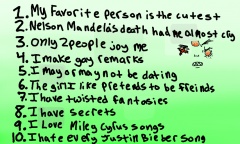 1. My Favorite person is the cutest
2. Nelson Mandela's death had me almost cry
3. Only 2 people joy me
4. I make gay remarks
5. I may or may not be dating
6. The girl I like pretends to be ffeinds
7. I have twisted fantasies
8. I have secrets
9. I Love Miley Cyrus songs
10. I hate every Justin Bieber song